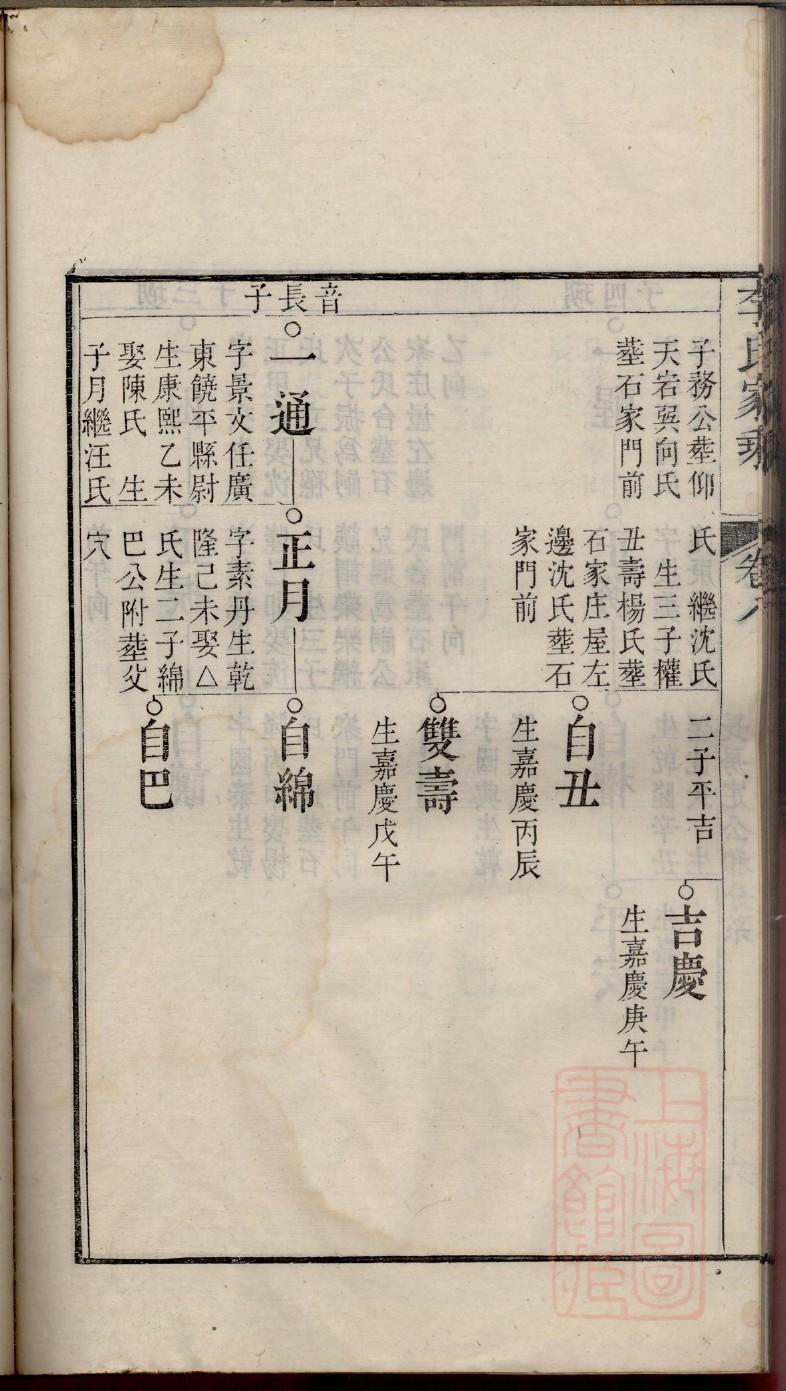 李氏家乘
卷八
子務公塟仰
天岩巽向氏
塟石家門前
氏 繼沈氏
生三子權
丑壽楊氏塟
石家庄屋左
邊沈氏塟石
家門前
二子平吉
吉慶
生嘉慶庚午
自丑
生嘉慶丙辰
雙壽
生嘉慶戊午
音長子
一通
字景文任廣
東饒平縣尉
生康熙乙未
娶陳氏 生
子月繼汪氏
正月
字素丹生乾
隆己未娶△
氏生二子綿
巴公附塟父
穴
自綿
自巴
上海圖
書館藏